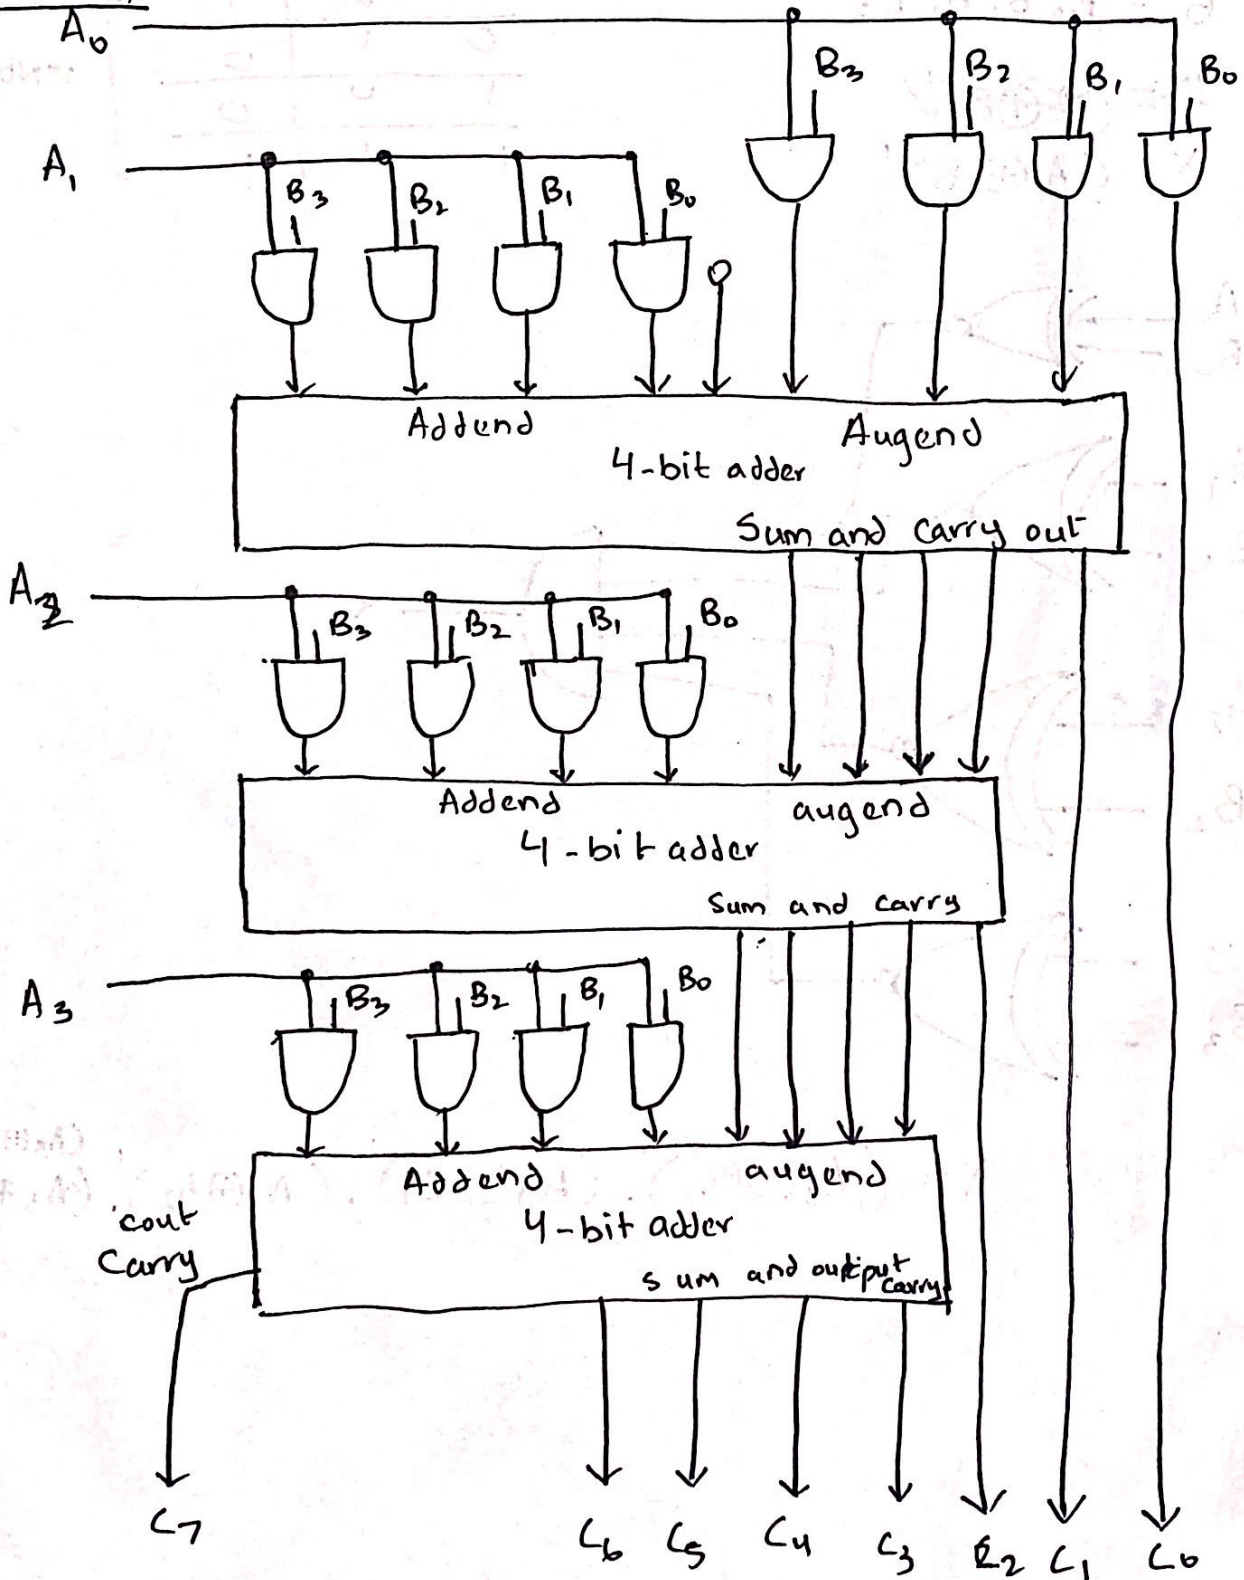 A₀
B₃ B₂ B₁ B₀
A₁
B₃ B₂ B₁ B₀
0
Addend Augend
4-bit adder
Sum and carry out
A₂
B₃ B₂ B₁ B₀
Addend augend
4-bit adder
Sum and carry
A₃
B₃ B₂ B₁ B₀
Addend augend
4-bit adder
cout
Carry
sum and output carry
C₇ C₆ C₅ C₄ C₃ C₂ C₁ C₀